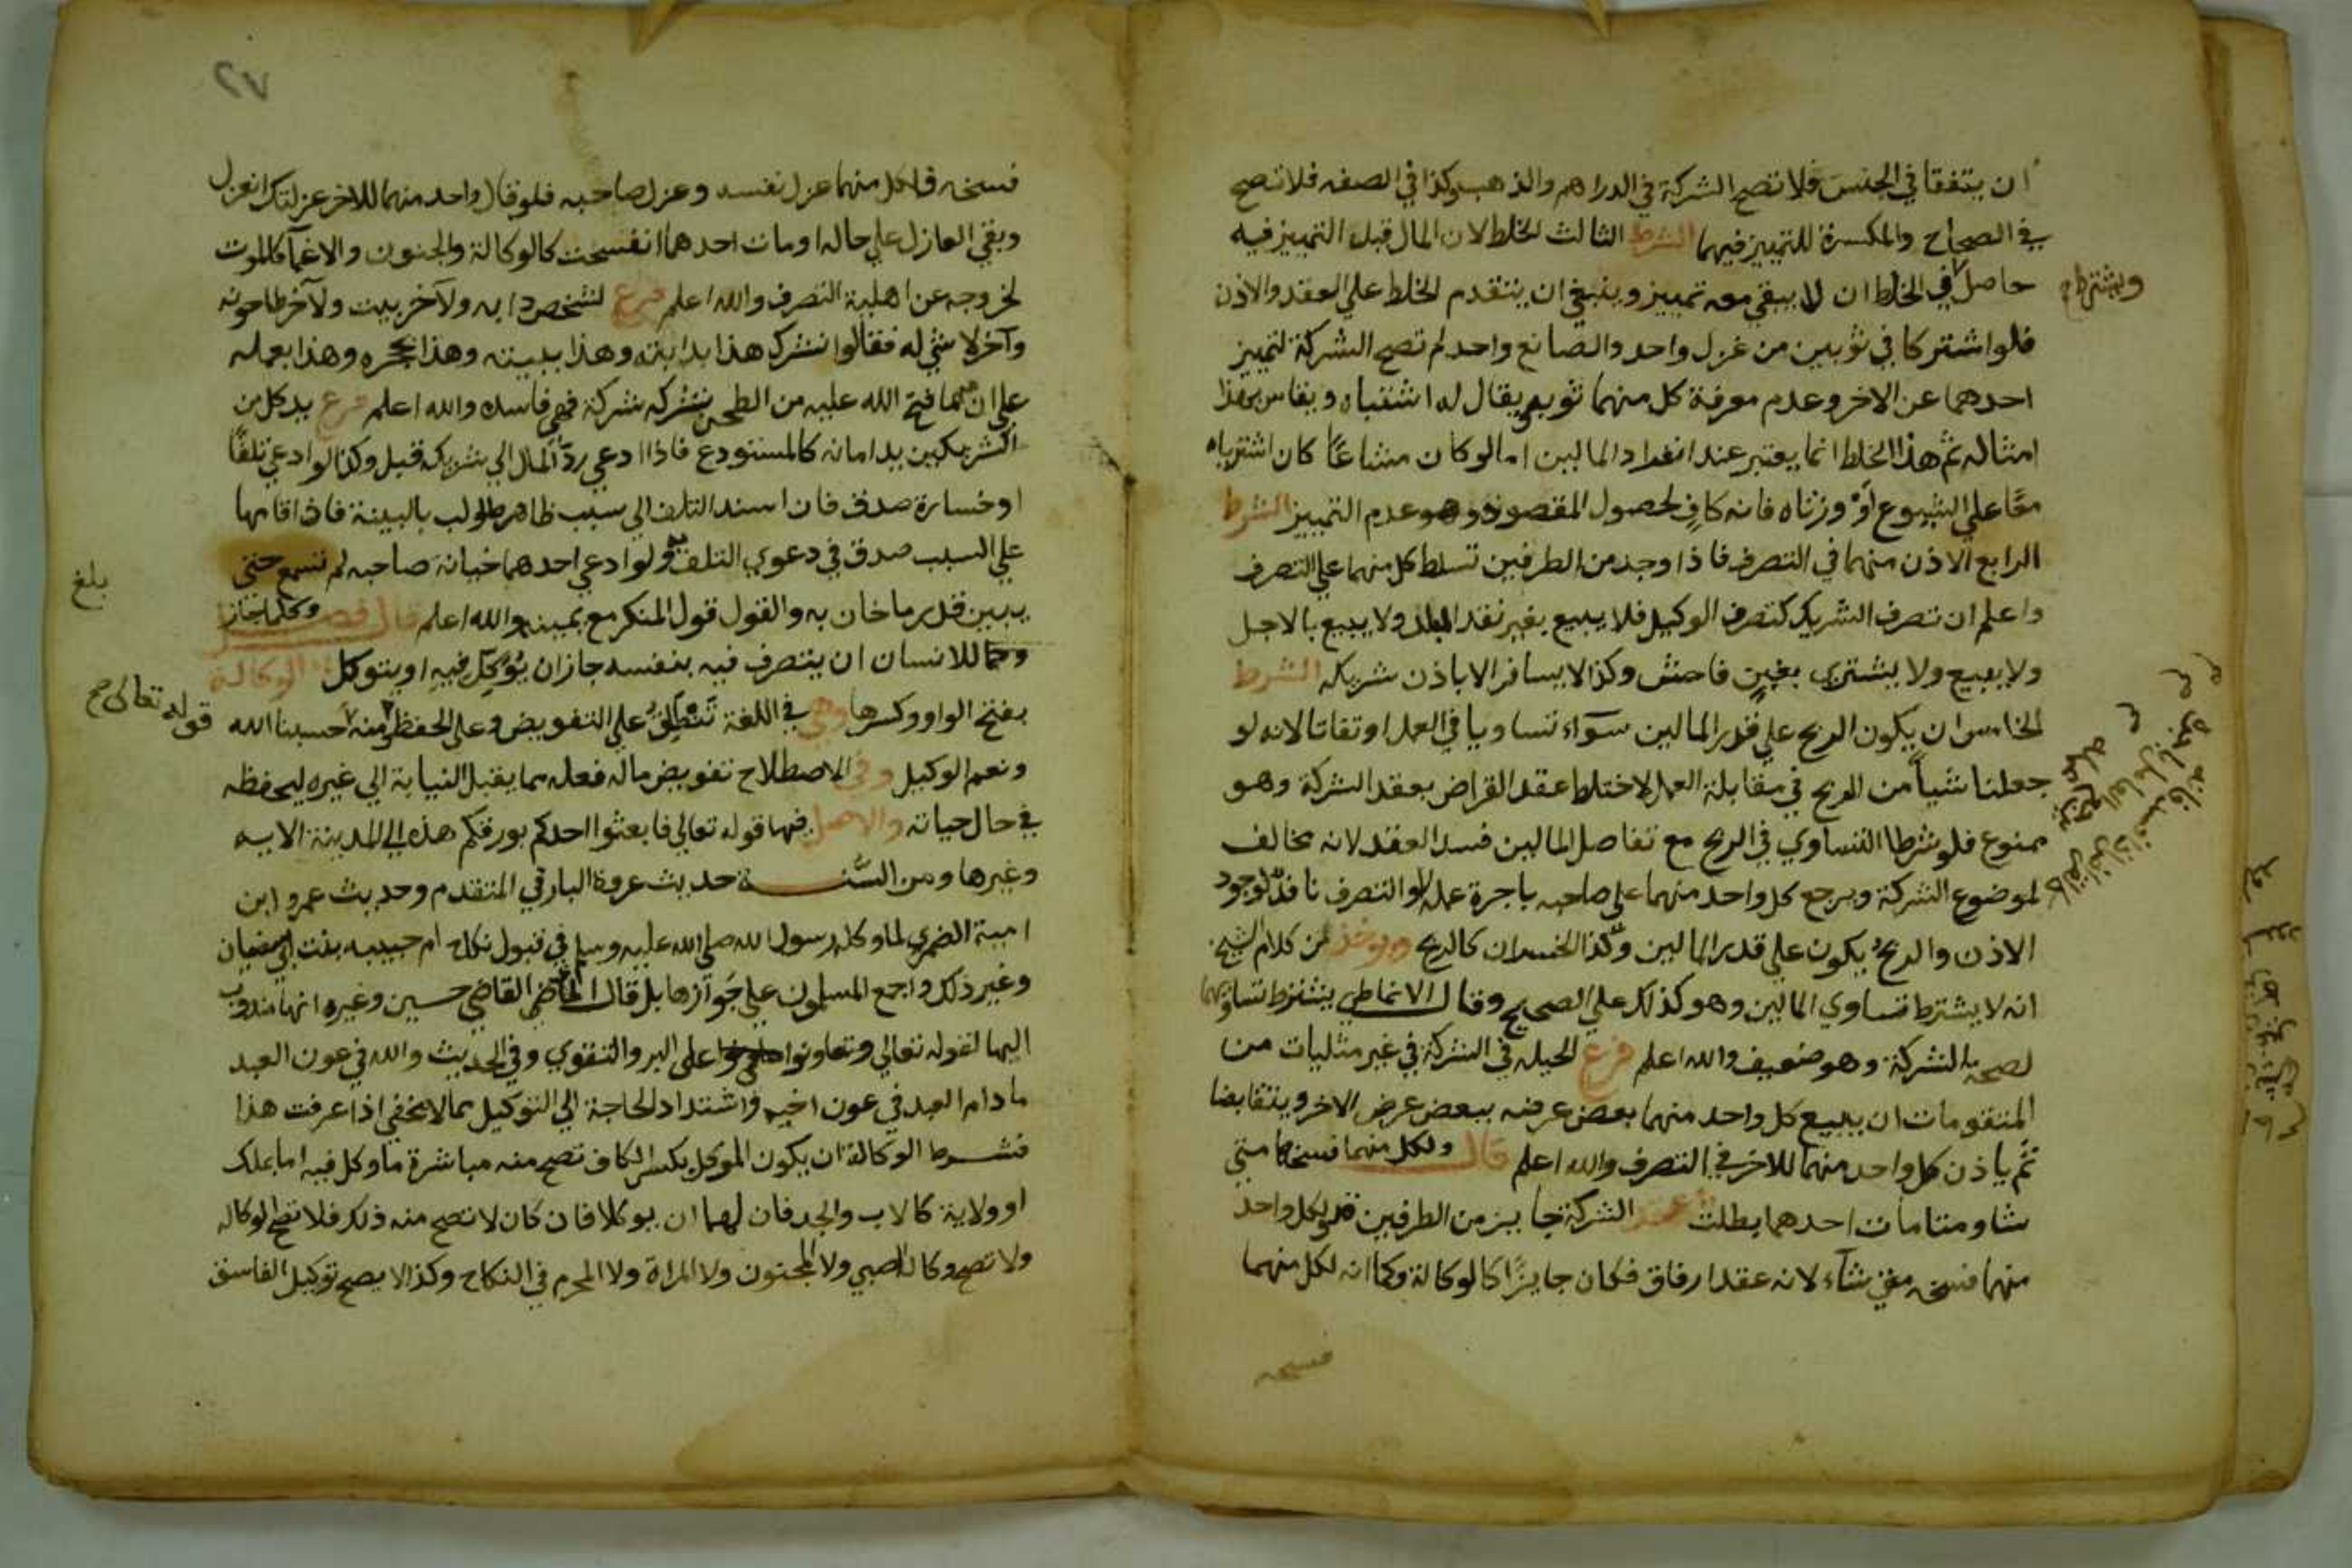 ان يتفقا في الجنس فلا تصح الشركة في الدراهم والذهب وكذا في الصفه فلا تصح
في الصحاح والمكسرة للتمييز فيهما الشرط الثالث الخلط لان المال قبل التمييز فيه
حاصل في الخلط ان لا يبقي معه تمييز وينبغي ان يتقدم الخلط علي العقد والاذن
ويشترط
فلو اشتركا في ثوبين من غزل واحد والصانع واحد لم تصح الشركة لتمييز
احدهما عن الاخر وعدم معرفة كل منهما ثوبه يقال له اشتباه ويقاس بهذا
امثاله ثم هذا الخلط انما يعتبر عند انفراد المالين اما لو كان مشاعًا كان اشترياه
معًا علي الشيوع أوْ ورثاه فانه كافٍ لحصول المقصود وهو عدم التمييز الشرط
الرابع الاذن منهما في التصرف فاذا وجد من الطرفين تسلط كل منهما علي التصرف
واعلم ان تصرف الشريك كتصرف الوكيل فلا يبيع بغير نقد البلد ولا يبيع بالاجل
ولا يبيع ولا يشتري بغبن فاحش وكذا لا يسافر الا باذن شريكه الشرط
الخامس ان يكون الربح علي قدر المالين سوآء تساويا في العمل او تفاتا لانه لو
جعلنا شياً من الربح في مقابلة العمل لاختلط عقد القراض بعقد الشركة وهو
ممنوع فلو شرطا التساوي في الربح مع تفاصل المالين فسد العقد لانه مخالف
لموضوع الشركة ويرجع كل واحد منهما علي صاحبه باجرة عمله والتصرف نافذ لوجود
الاذن والربح يكون علي قدر المالين وكذا الخسران كالربح ويوخذ من كلام الشيخ
انه لا يشترط تساوي المالين وهو كذلك علي الصحيح وقال الانماطي يشترط تساويهما
لصحة الشركة وهو ضعيف والله اعلم فرع الحيله في الشركة في غير مثليات من
المتقومات ان يبيع كل واحد منهما بعض عرضه ببعض عرض الاخر ويتقابضا
ثم ياذن كل واحد منهما للاخر في التصرف والله اعلم قال ولكل منهما فسخها متي
شا ومتا مات احدهما بطلت عقد الشركة جايز من الطرفين فلكل واحد
منهما فسخه متي شآء لانه عقد ارفاق فكان جايزًا كالوكالة وكما انه لكل منهما
فسخه
٢٧
فسخه فلكل منهما عزل نفسه وعزل صاحبه فلو قال واحد منهما للاخر عزلتك انعزل
وبقي العازل علي حاله او مات احدهما انفسخت كالوكالة والجنون والاغمآ كالموت
لخروجه عن اهلية التصرف والله اعلم فرع لشخص دابه ولآخر بيت ولآخر طاحونه
وآخر لا شي له فقالوا نشترك هذا بدابته وهذا ببيته وهذا بحجره وهذا بعمله
علي ان مما فتح الله عليه من الطحن شركة فهي فاسده والله اعلم فرع يد كل من
الشريكين يد امانه كالمستودع فاذا ادعي ردّ المال الي شريكه قبل وكذا لو ادعي تلفًا
او خسارة صدق فان اسند التلف الي سبب ظاهر طولب بالبينة فاذا اقامها
علي السبب صدق في دعوي التلف به ولو ادعي احدهما خيانة صاحبه لم تسمع حتي
بلغ
يبين قدر ما خان به والقول قول المنكر مع يمينه والله اعلم قال فصل وكلما جاز
للانسان ان يتصرف فيه بنفسه جاز ان يُوَكِّل فيه او يتوكل الوكالة
بفتح الواو وكسرها وهي في اللغة تَنْطلِقُ علي التفويض وعلي الحفظ ومنه حسبنا الله
قوله تعالى صح
ونعم الوكيل وفي الاصطلاح تفويض ماله فعله مما يقبل النيابة الي غيره ليحفظه
في حال حياته والاصل فيها قوله تعالي فابعثوا احدكم بورقكم هذه الي المدينة الايه
وغيرها ومن السُّنة حديث عروة البارقي المتقدم وحديث عمرو ابن
امية الضمري لما وكله رسول الله صلي الله عليه وسلم في قبول نكاح ام حبيبه بنت ابي سفيان
وغير ذلك واجمع المسلمون علي جوازها بل قال القاضي حسين وغيره انها مندوب
اليها لقوله تعالي وتعاونوا علي البر والتقوي وفي الحديث والله في عون العبد
ما دام العبد في عون اخيه واشتداد الحاجة الي التوكيل مما لا يخفي اذا عرفت هذا
فشرط الوكالة ان يكون الموكل بكسر الكاف تصح منه مباشرة ما وكل فيه اما بملك
او ولاية كالاب والجد فان لهما ان يوكلا فان كان لا تصح منه ذلك فلا تصح الوكاله
ولا تصح وكالة الصبي ولا المجنون ولا المراة ولا المحرم في النكاح وكذا لا يصح توكيل الفاسق